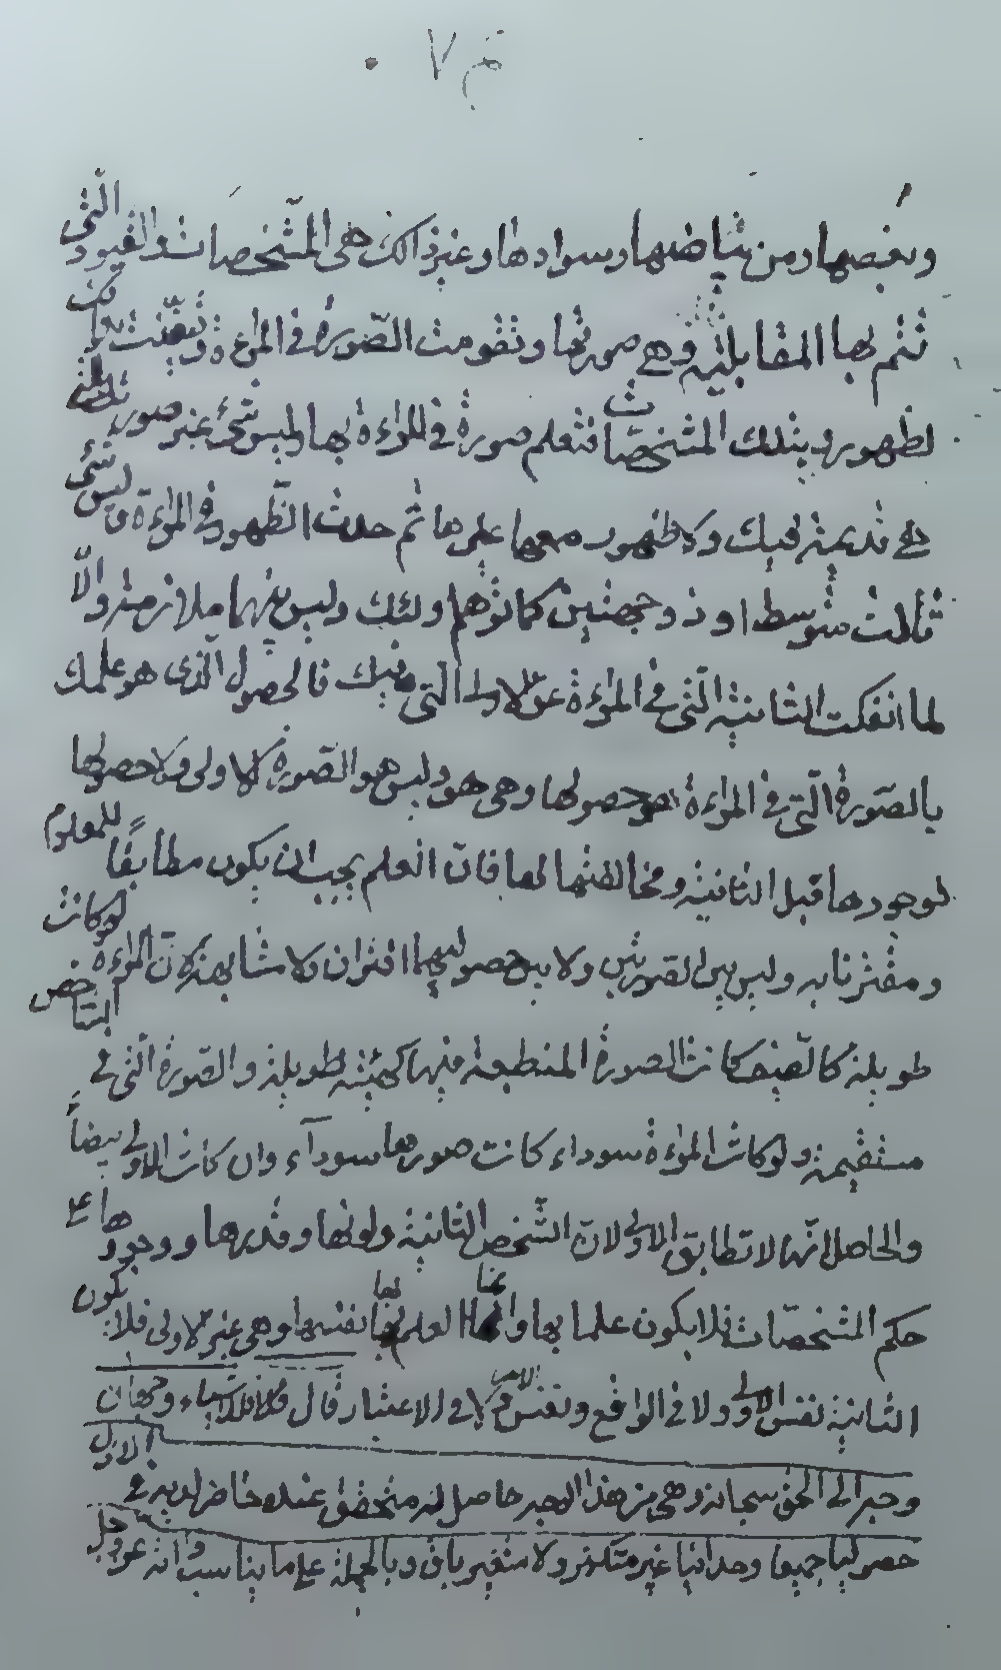 ٧٤
وبعضها ومن بياضها وسوادها وغير ذالك هى المشخصات والقيود التى
تتم بها المقابلية وهى صورتها وتقومت الصورة فى المراءة وتعينت بتلك
لظهور وبتلك المشخصات فتعلم صورة فى المراءة بها وليس شئ غير صورتك
هى قديمة فيك ولا ظهور معها علمها ثم حدث الظهور فى المراءة وليس شئ
ثالث متوسط او ذو جهتين كما توهم اولئك وليس بينهما ملازمة والّا
لما انفكت الثانية التى فى المراءة عن الاولى التى فيك فالحصول الذى هو علمك
بالصورة التى فى المراءة هو حصولها وهى هو وليس هو الصورة الاولى ولا حصولها
لوجودها قبل الثانية ومخالفتها لها فان العلم يجب ان يكون مطابقًا للمعلوم
ومقترنا به وليس بين الصورتين ولا بين حصوليهما اقتران ولا مشابهة لان المراءة لو كانت
طويلة كالسيف كانت الصورة المنطبعة فيها كهيئته طويلة والصورة التى فى الشاخص
مستقيمة ولو كانت المراءة سوداء كانت صورتها سودآء وان كانت الاولى بيضاء
والحاصل انّها لا تطابق الاولى لان الشخص الثانية ولونها وقدرها ووجودها على
حكم المشخصات فلا يكون علما بها وانما العلم بها نفسها وهى غير الاولى فلا يكون
الثانية نفس الاولى ولا فى الواقع ونفس الامر ولا فى الاعتبار قال فللاشياء وجهان
وجه الى الحق سبحانه وهى من هذا الوجه حاصل له متحقق عنده حاضر لديه فى الازل
حصوليا جميعا وحدانيا غير متكثر ولا متغير باق وبالجملة على ما يناسب وانه عز وجل